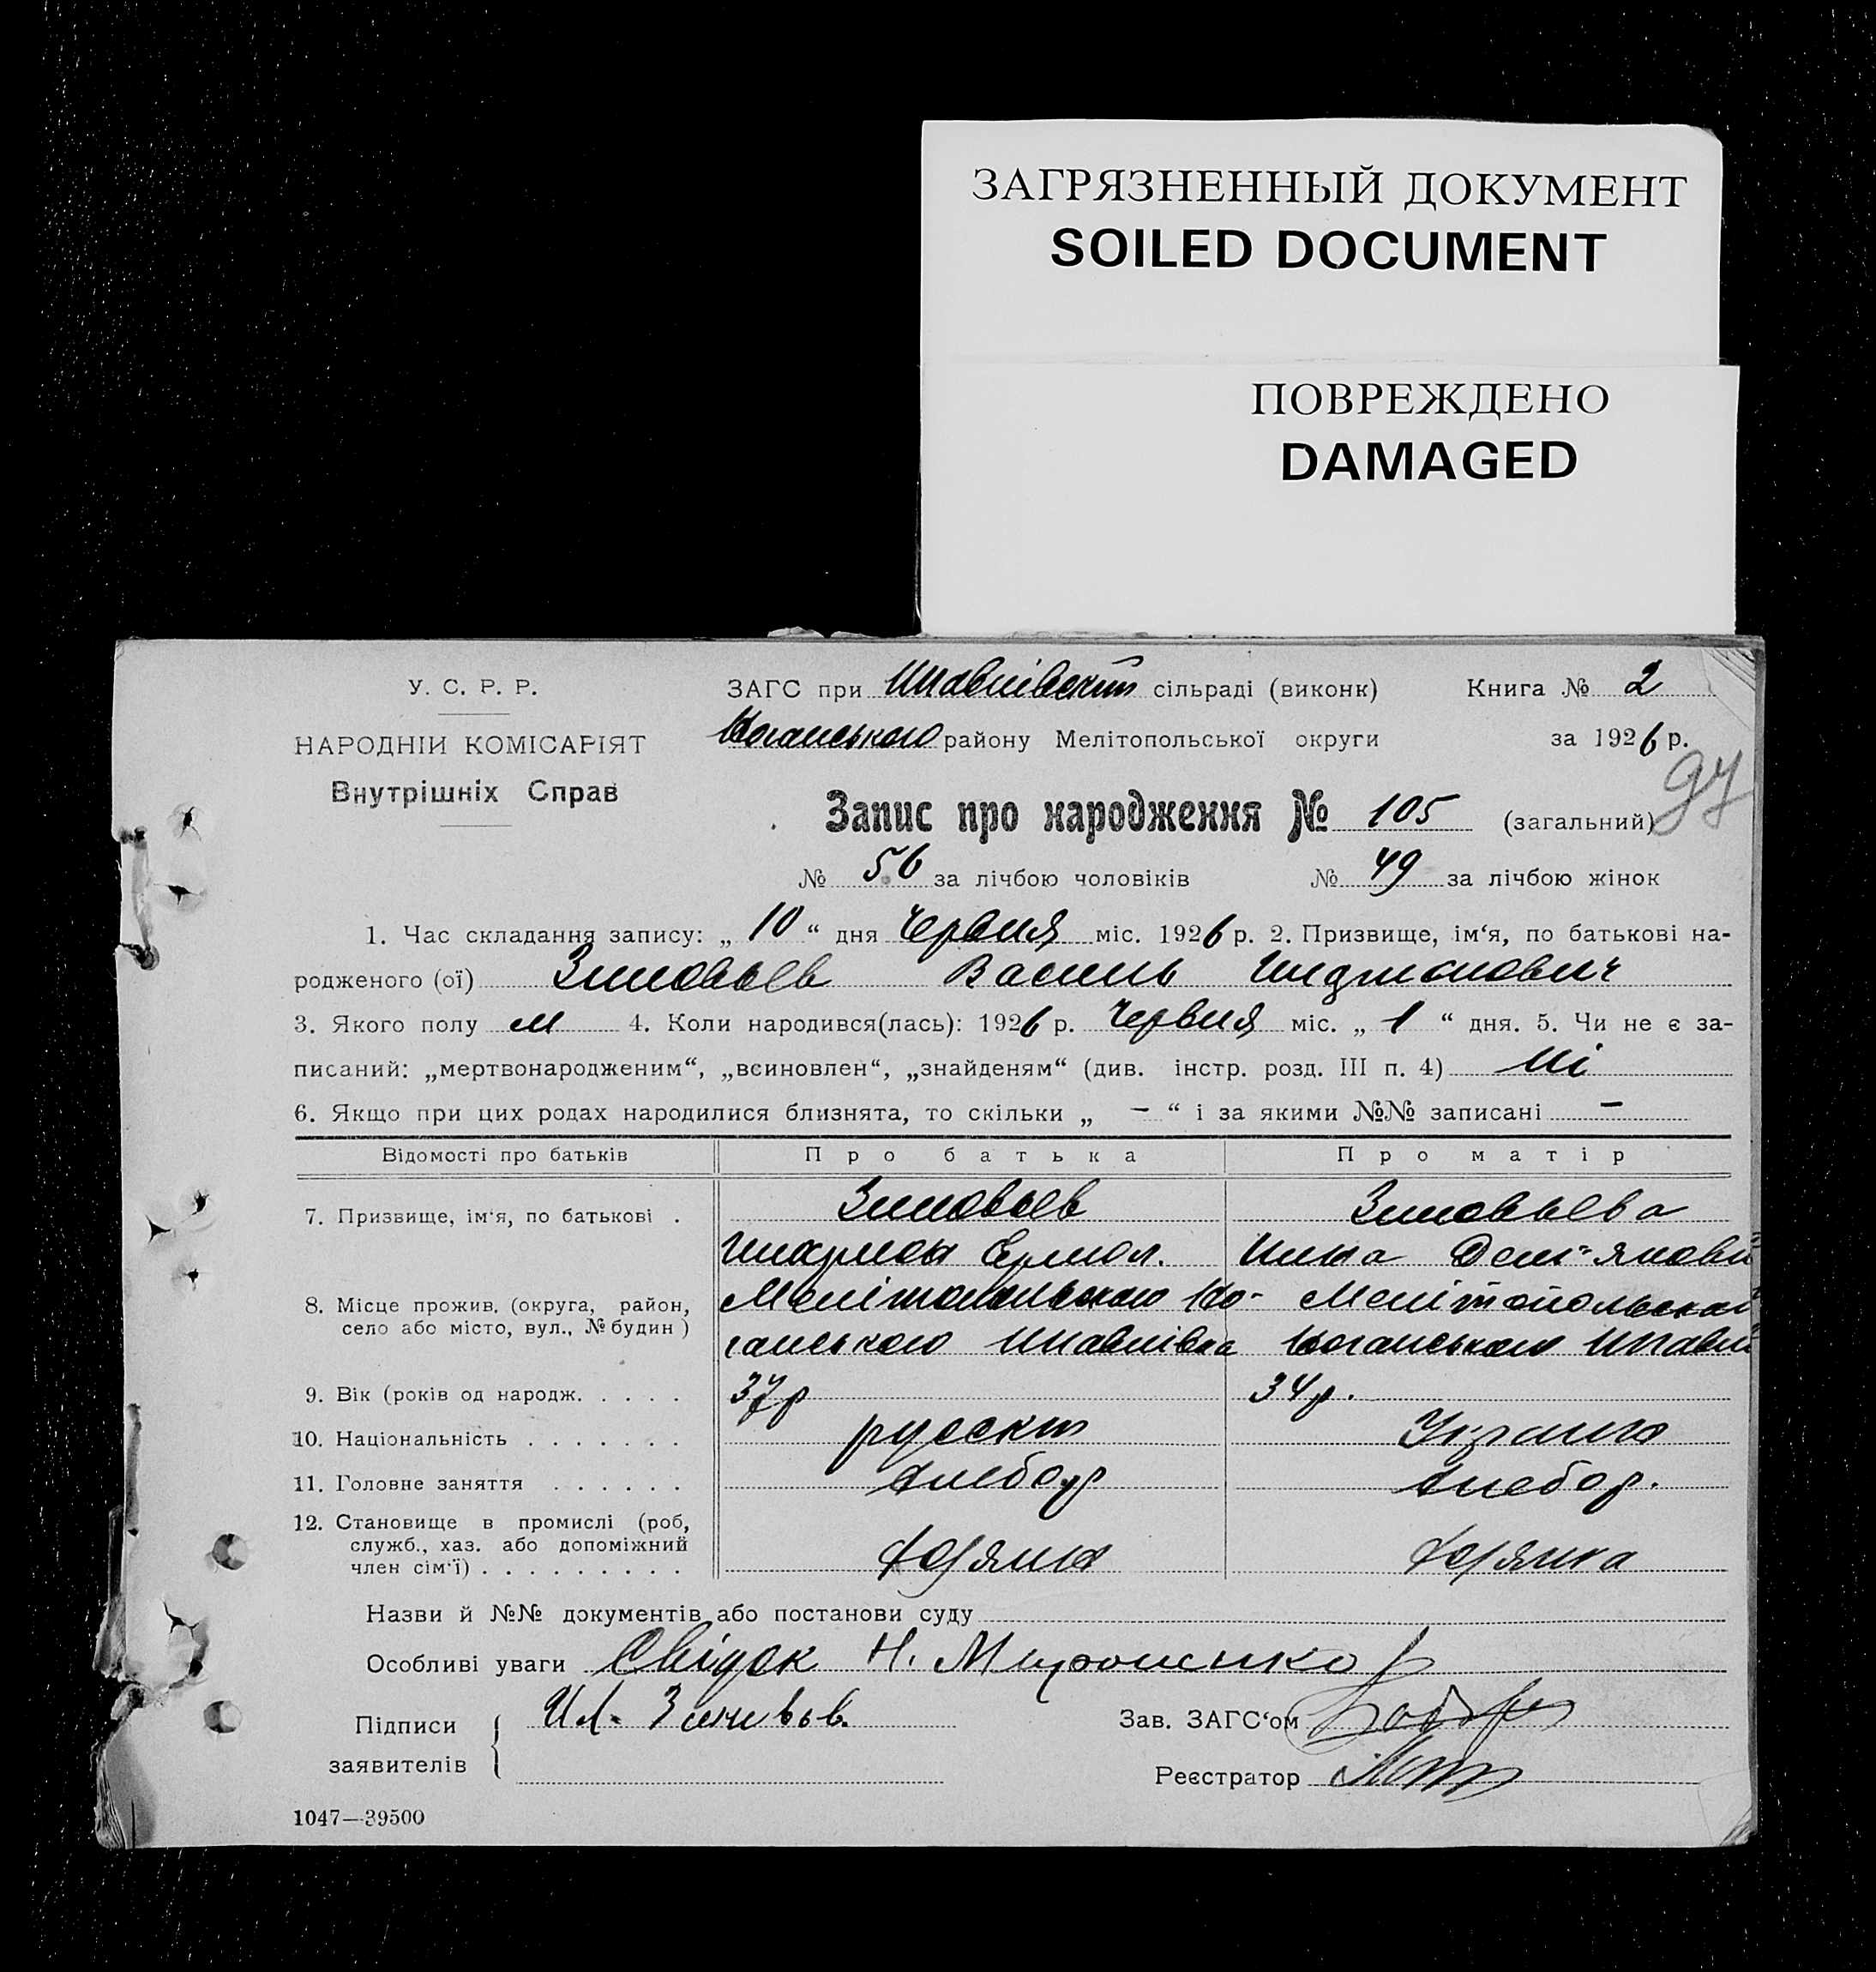 ЗАГРЯЗНЕННЫЙ ДОКУМЕНТ
SOILED DOCUMENT
ПОВРЕЖДЕНО
DAMAGED
У. С. Р. Р.
НАРОДНІЙ КОМІСАРІЯТ
Внутрішніх Справ
ЗАГС при сільраді (виконк) Книга № 2
Ногайського району Мелітопольської округи за 1926 р.
97
Запис про народження № 105 (загальний)
№ 56 за лічбою чоловіків № 49 за лічбою жінок
1. Час складання запису: „ 10 “ дня Червня міс. 1926 р. 2. Призвище, ім‘я, по батькові на-
родженого (ої) Зиновьев Василь
3. Якого полу м 4. Коли народився(лась): 1926 р. Червня міс. „ 1 “ дня. 5. Чи не є за-
писаний: „мертвонародженим“, „всиновлен“, „знайденям“ (див. інстр. розд. III п. 4) Ні
6. Якщо при цих родах народилися близнята, то скільки „ – “ і за якими №№ записані –
Відомості про батьків Про батька Про матір
7. Призвище, ім‘я, по батькові . Зиновьев Зиновьева
8. Місце прожив. (округа, район,
село або місто, вул., № будин )
9. Вік (років од народж. . . . . 37 р 34 р.
10. Національність . . . . . . . русский
11. Головне заняття . . . . . . хлебор хлебор.
12. Становище в промислі (роб,
служб., хаз. або допоміжний
член сім‘ї) . . . . . . . . .
Назви й №№ документів або постанови суду
Особливі уваги Свідок Н. Мирошенко
Підписи
заявителів
Зав. ЗАГС‘ом
Реєстратор
1047—39500